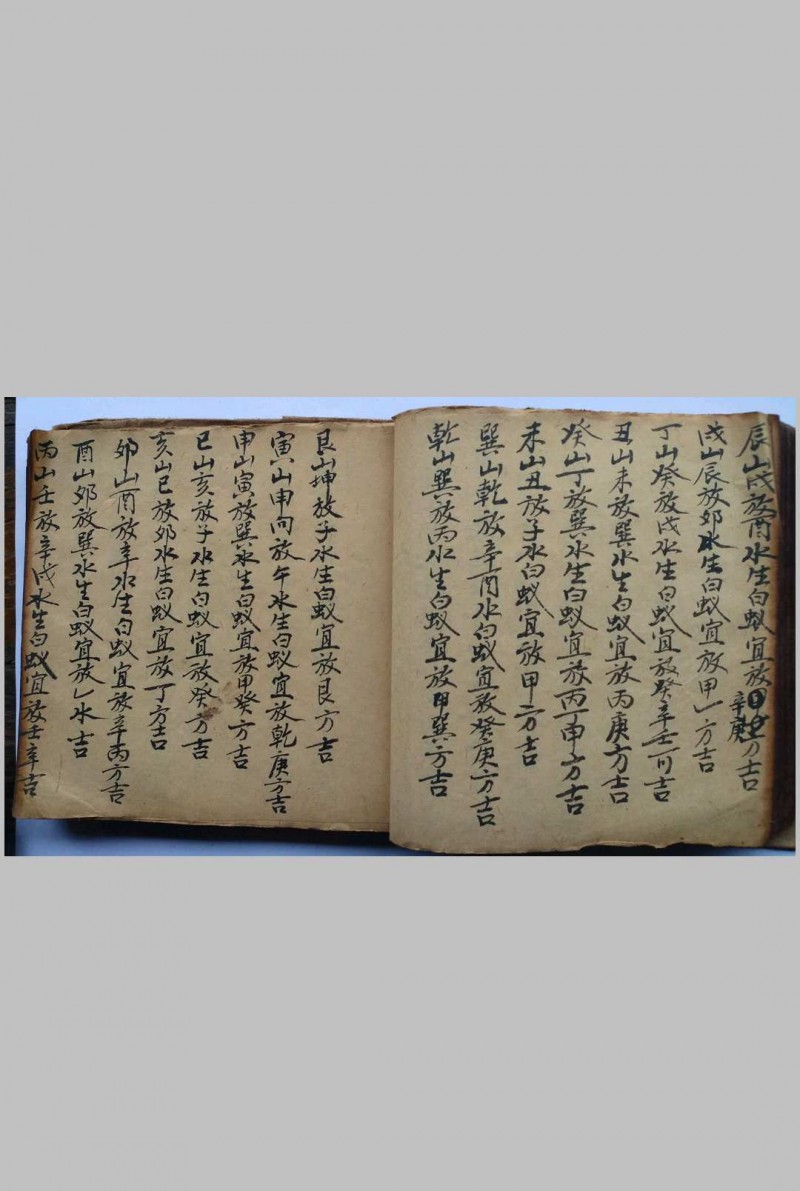 辰山戌放酉水生白蚁宜放甲方吉
辛庚
戌山辰放卯水生白蚁宜放甲一方吉
丁山癸放戌水生白蚁宜放癸辛壬可吉
丑山未放巽水生白蚁宜放丙庚方吉
癸山丁放巽水生白蚁宜放丙丁申方吉
未山丑放子水白蚁宜放甲方吉
巽山乾放辛酉水白蚁宜放癸庚方吉
乾山巽放丙水生白蚁宜放甲巽方吉
艮山坤放子水生白蚁宜放艮方吉
寅山申向放午水生白蚁宜放乾庚方吉
申山寅放巽水生白蚁宜放甲癸方吉
巳山亥放子水生白蚁宜放癸方吉
亥山巳放卯水生白蚁宜放丁方吉
卯山酉放辛水生白蚁宜放辛丙方吉
酉山卯放巽水生白蚁宜放乙水吉
丙山壬放辛戌水生白蚁宜放壬辛吉